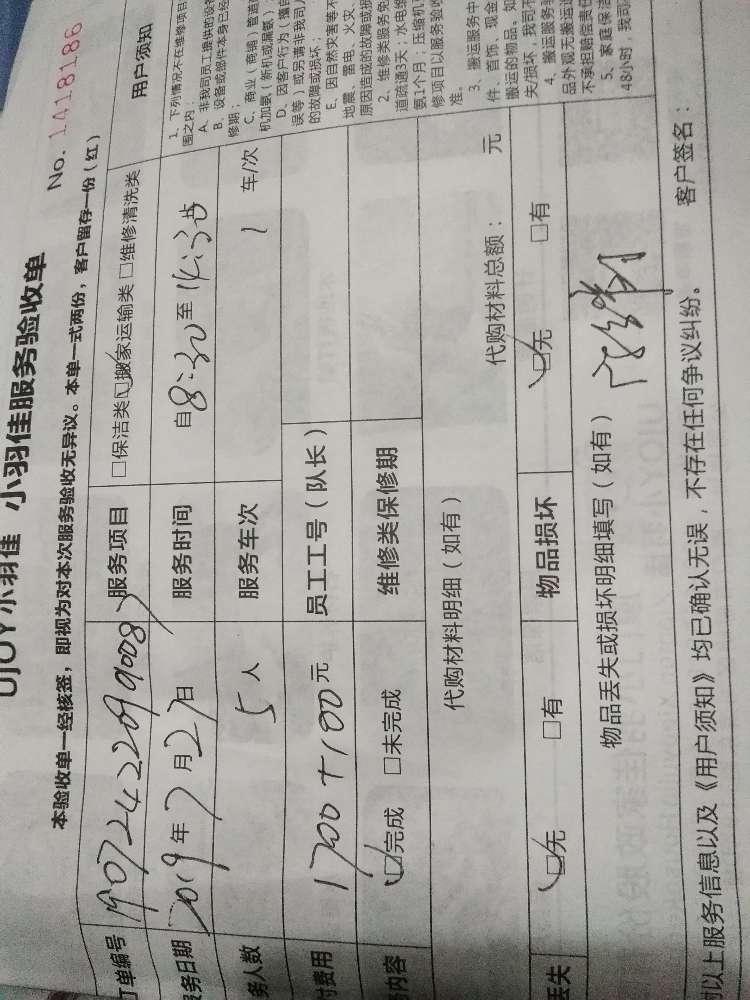 UJOY小羽佳 小羽佳服务验收单
No. 1418186
本验收单一经核签，即视为对本次服务验收无异议。本单一式两份，客户留存一份（红）
订单编号 服务项目 □保洁类 ☑搬家运输类 □维修清洗类
服务日期 2019年7月27日 服务时间 自8:30至14:30
务人数 5人 服务车次 1 车/次
付费用 1700+100元 员工工号（队长）
务内容 ☑完成 □未完成 维修类保修期
代购材料明细（如有） 代购材料总额： 元
丢失 ☑无 □有 物品损坏 ☑无 □有
物品丢失或损坏明细填写（如有）
以上服务信息以及《用户须知》均已确认无误，不存在任何争议纠纷。 客户签名：
用户须知
1、下列情况不在维修项目
围之内：
A、非我司员工提供的设备
B、设备或部件本身已经
修期；
C、商业（商铺）管道
机加氨（新机或漏氨）；
D、因客户行为（擅自
误等）或另请非我司人
的故障或损坏；
E、因自然灾害等不
地震、雷电、火灾、
原因造成的故障或损
2、维修类服务免
道疏通3天；水电维
氨1个月；压缩机
修项目以服务验收
准。
3、搬运服务中
件、首饰、现金
搬运的物品。如
失/损坏，我司不
4、搬运服务验
品外观无搬运
不承担赔偿责任
5、家庭保洁
48小时，我司